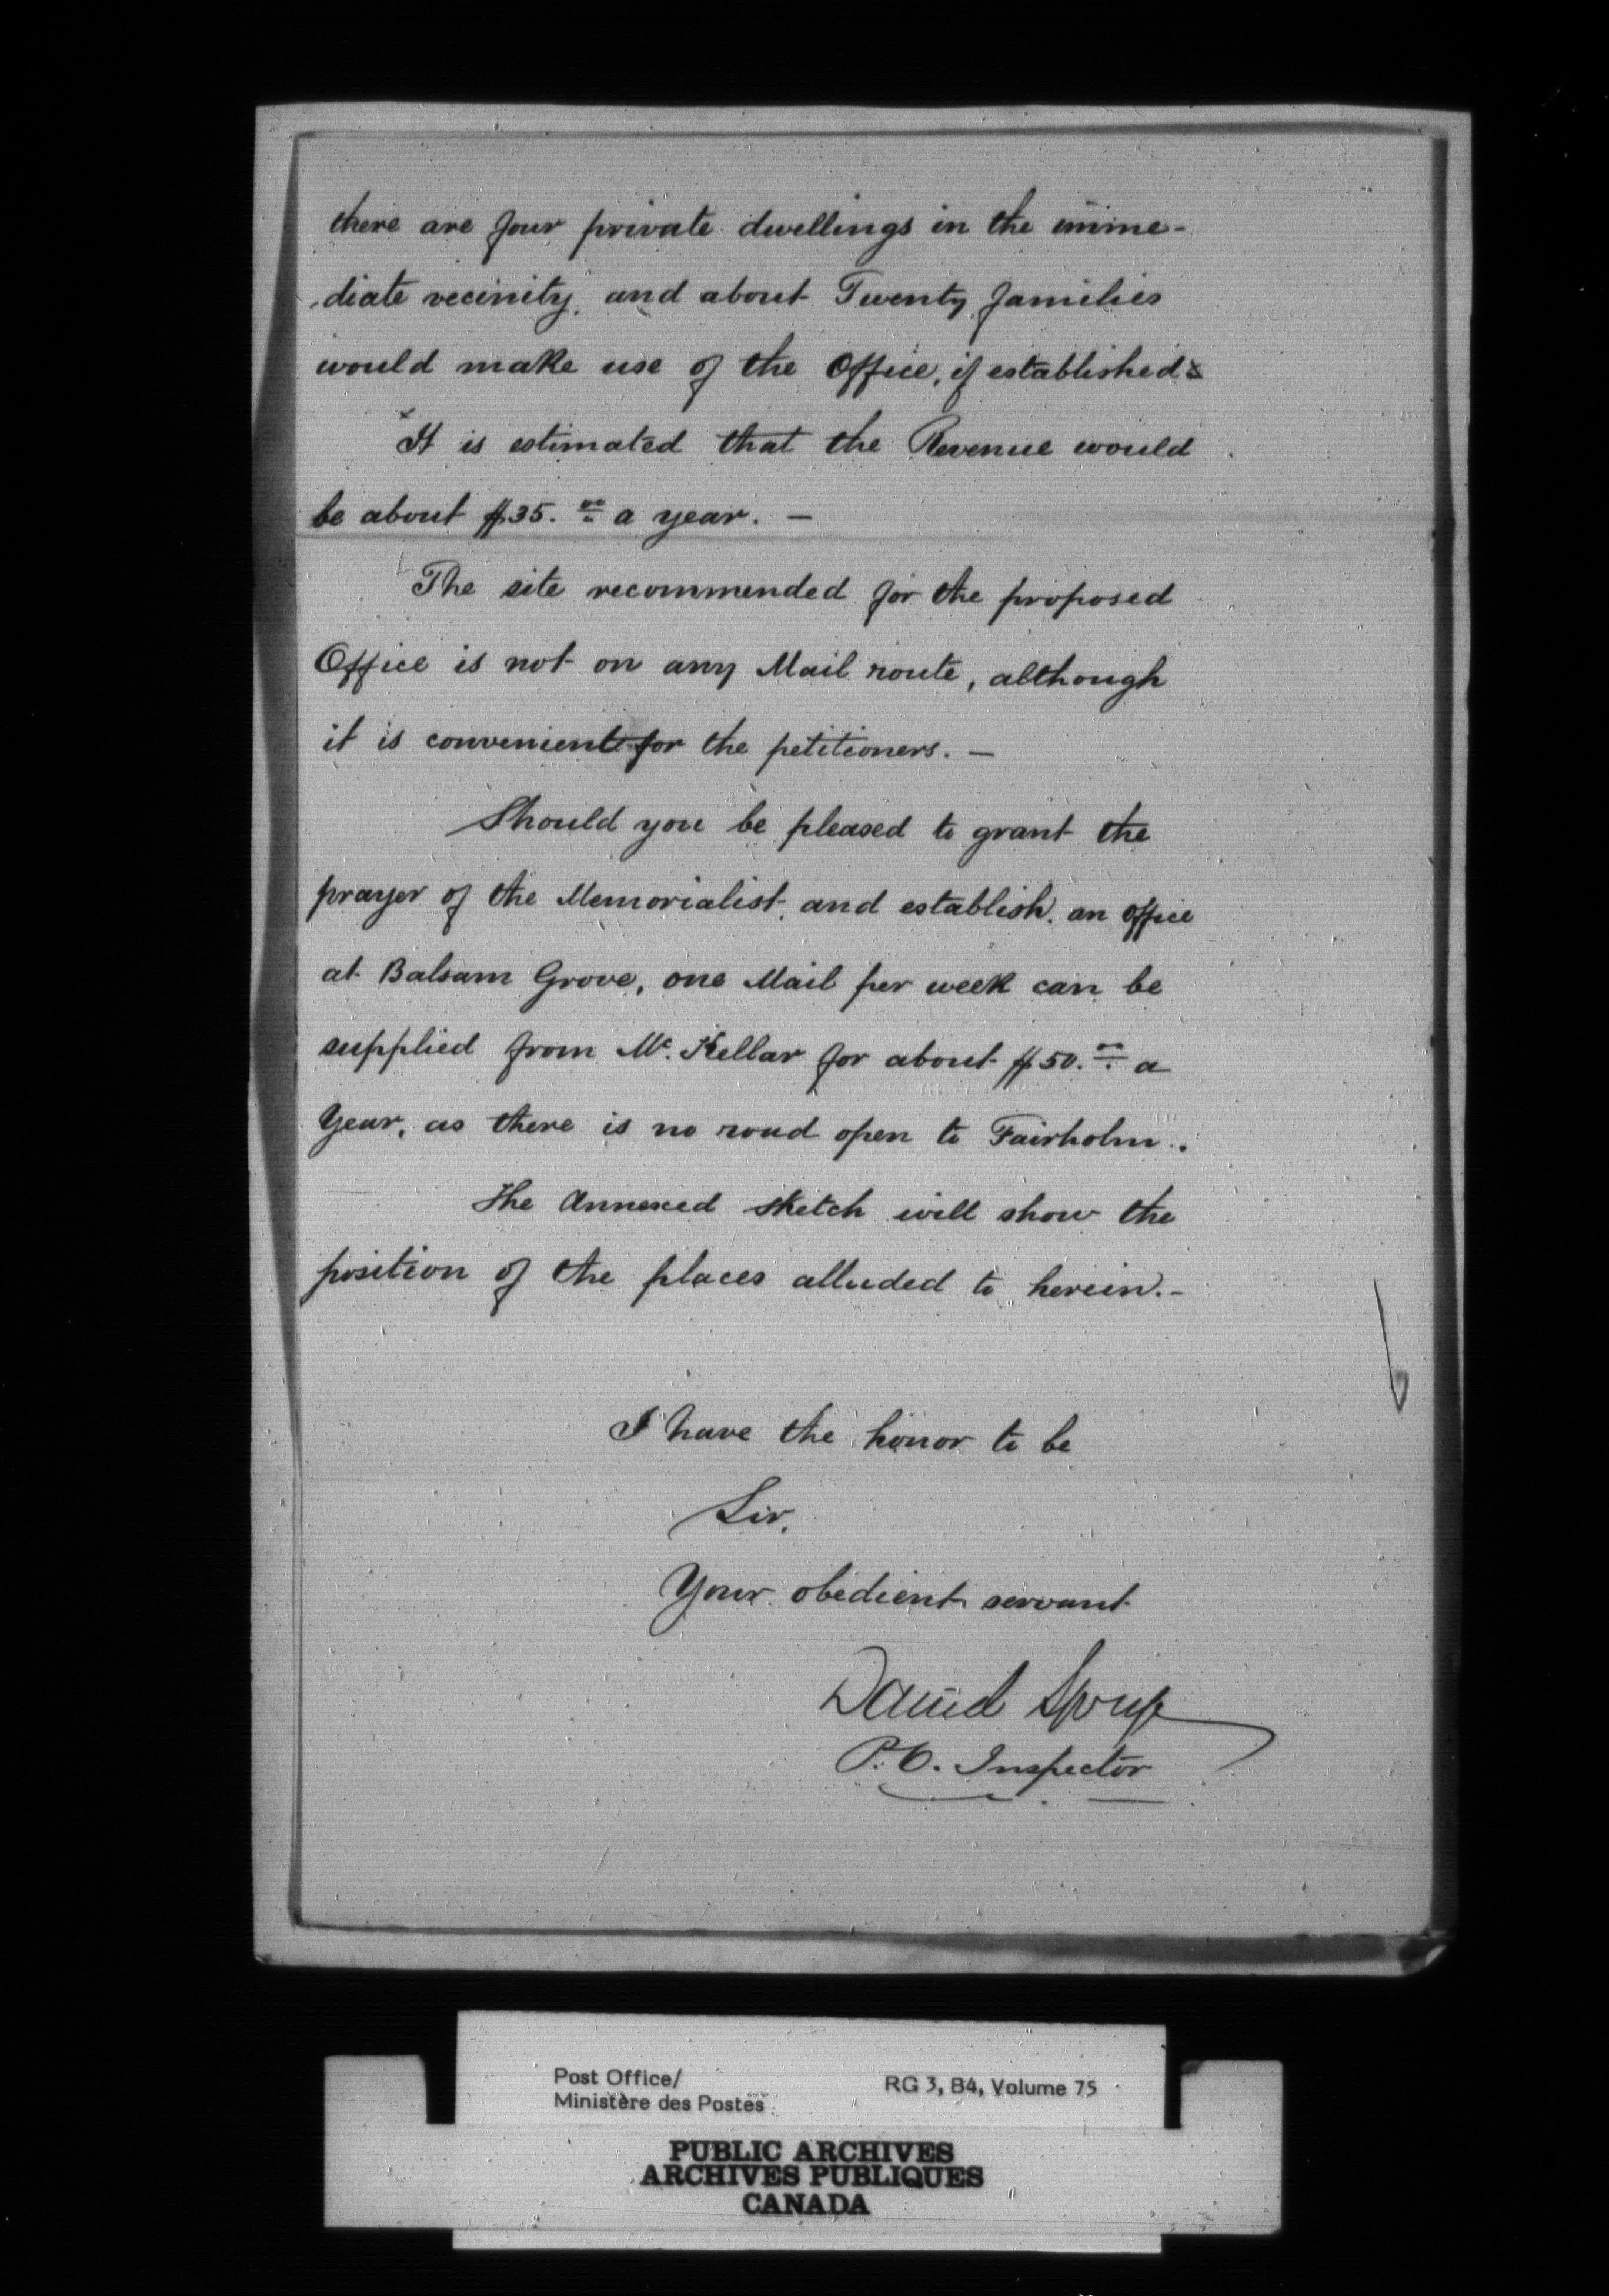 there are four private dwellings in the imme-
diate vecinity, and about Twenty families
would make use of the Office, if established
It is estimated that the Revenue would
be about $35.00 a year. —
The site recommended for the proposed
Office is not on any Mail route, although
it is convenient for the petitioners. —
Should you be pleased to grant the
prayer of the Memorialist, and establish an office
at Balsam Grove, one Mail per week can be
supplied from Mc. Kellar for about $50.00 a
Year, as there is no road open to Fairholm.
The Annexed sketch will show the
position of the places alluded to herein. -
I have the honor to be
Sir,
Your obedient servant
Daniel Spry
P.O. Inspector
Post Office/
Ministère des Postes
RG 3, B4, Volume 75
PUBLIC ARCHIVES
ARCHIVES PUBLIQUES
CANADA